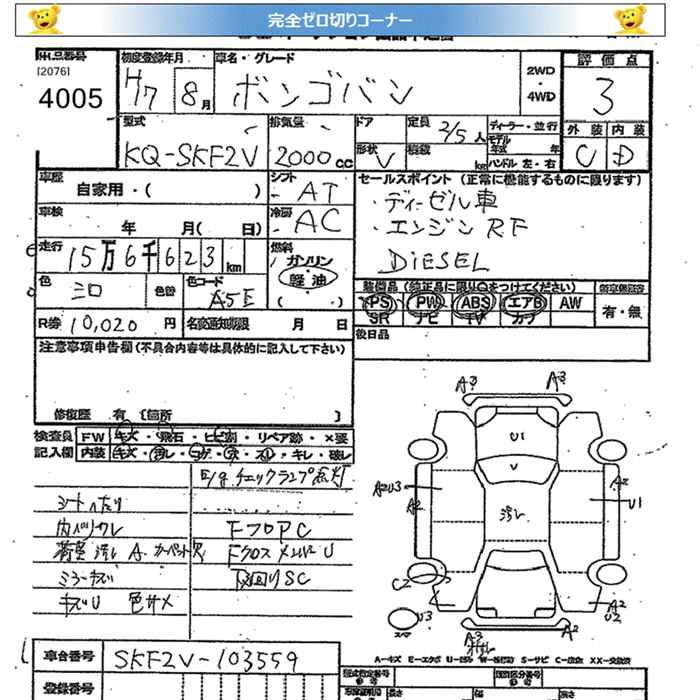 完全ゼロ切りコーナー
[2076]
4005
初度登録年月
H7 8月
車名・グレード
ボンゴバン
2WD
・
4WD
評価点
3
外装 内装
C D
型式
KQ-SKF2V
排気量
2000cc
ドア
形状
V
定員 2/5人
積載 kg
ディーラー・並行
モデル
年式 年
ハンドル 左・右
車歴
自家用・( )
シフト
AT
車検
年 月( 日)
冷房
AC
走行
15万6千623km
燃料
ガソリン
軽油
( )
色
シロ
色替
色コード
A5E
R券 10,020円
名変通知期限 月 日
セールスポイント (正常に機能するものに限ります)
・ディーゼル車
・エンジンRF
DIESEL
装備品 (純正品に限り○をつけてください)
PS PW ABS エアB AW
SR ナビ TV カワ
有・無
後日品
注意事項申告欄(不具合内容等は具体的に記入して下さい)
修復歴 有 〔箇所 〕
検査員 FW キズ・飛石・ヒビ割・リペア跡・×要
記入欄 内装 キズ・汚レ・コゲ・穴・スレ・キレ・破レ
E/gチェックランプ点灯
シートヘタリ
内ハリワレ
FフロアC
荷室 汚レ A カーペット欠
FクロスメンバーU
ミラーキズ
下回りSC
キズU 色サメ
A3 A3
U1
V
汚レ
A2U3
A2
A2
U1
C2
U3
スペア
A3
A2
A2
U2
A-キズ E-エクボ
車台番号
SKF2V-103559
登録番号
型式指定番号
類別区分番号
長さ
幅
高さ